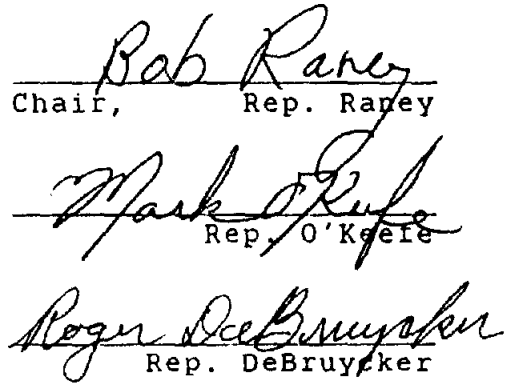 Bob Raney
Chair, Rep. Raney
Mark O'Keefe
Rep. O'Keefe
Roger DeBruycker
Rep. DeBruycker